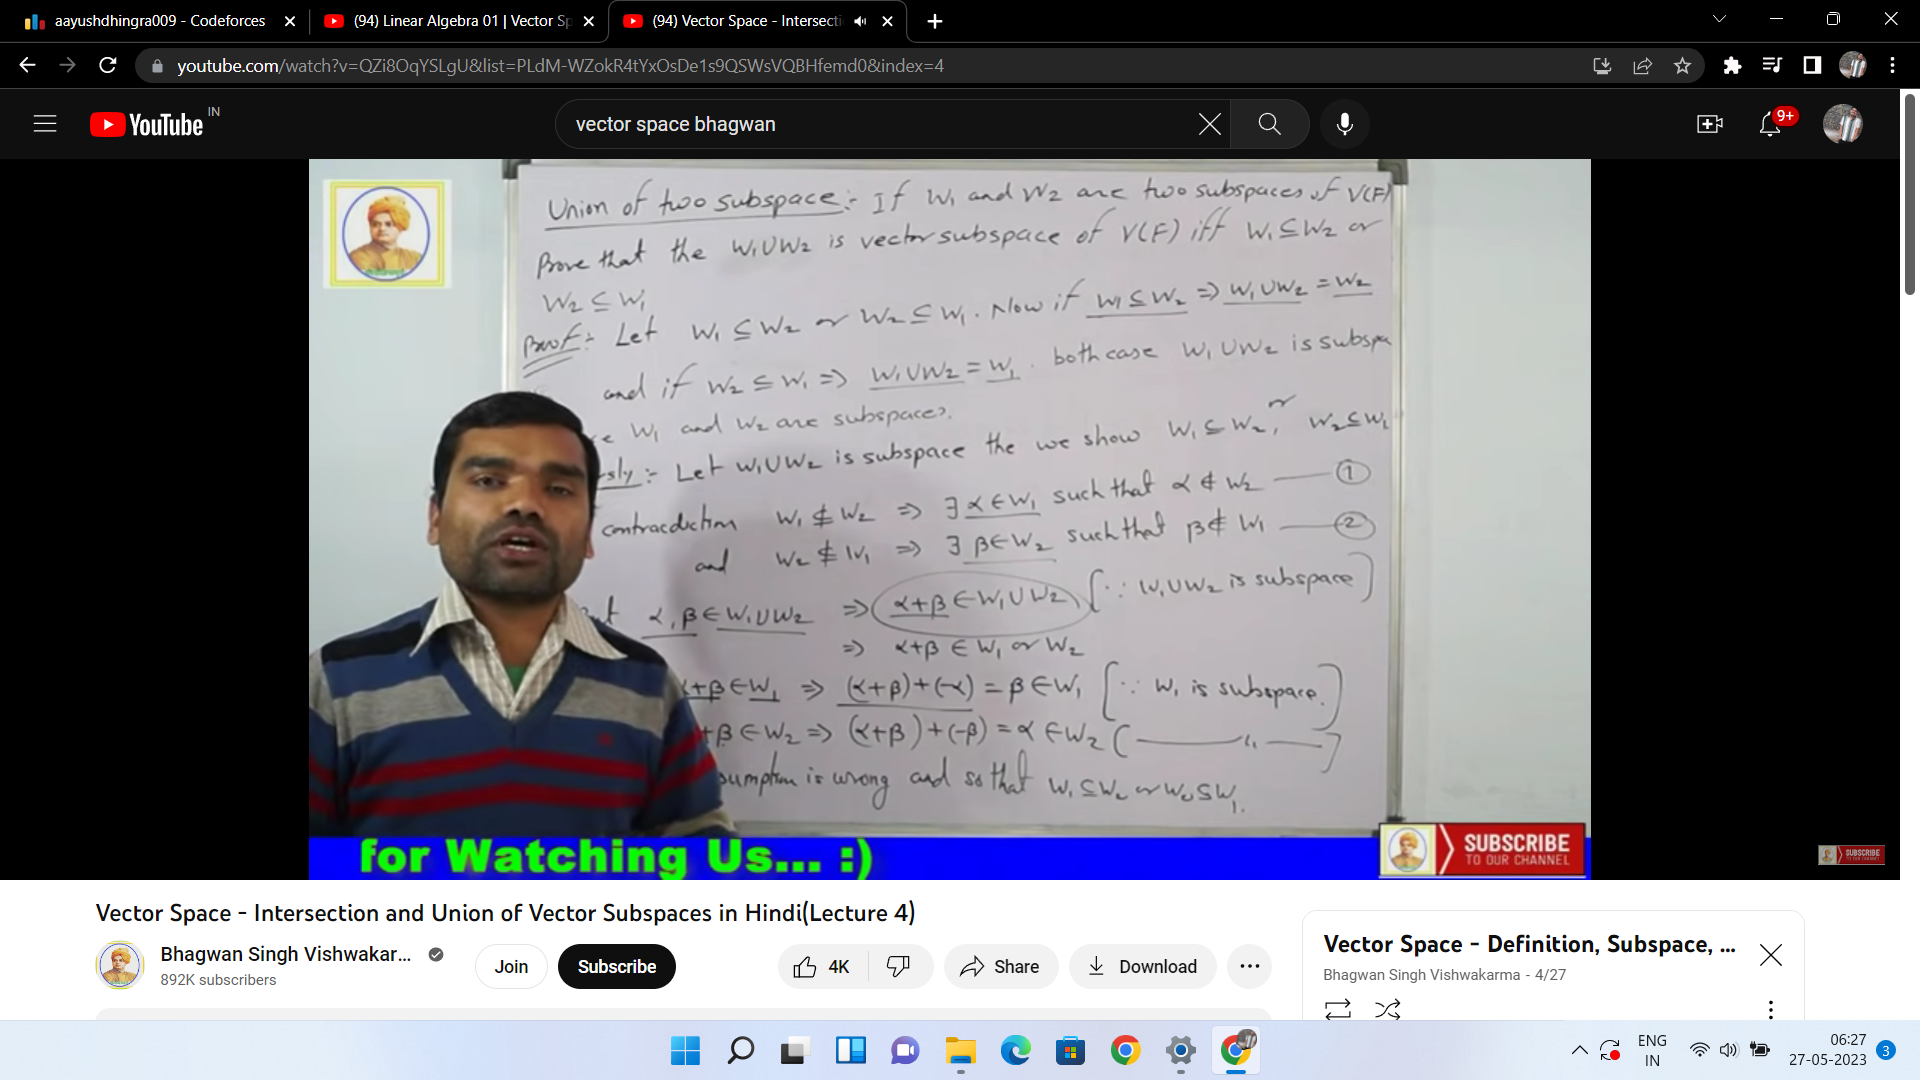 aayushdhingra009 - Codeforces
(94) Linear Algebra 01 | Vector Sp
(94) Vector Space - Intersecti
youtube.com/watch?v=QZi8OqYSLgU&list=PLdM-WZokR4tYxOsDe1s9QSWsVQBHfemd0&index=4
YouTube IN
vector space bhagwan
9+
Union of two subspace:- If W₁ and W₂ are two subspaces of V(F)
Prove that the W₁∪W₂ is vector subspace of V(F) iff W₁⊆W₂ or
W₂ ⊆ W₁
Proof:- Let W₁ ⊆ W₂ or W₂ ⊆ W₁. Now if W₁ ⊆ W₂ ⇒ W₁∪W₂ = W₂
and if W₂ ⊆ W₁ ⇒ W₁∪W₂ = W₁. both case W₁∪W₂ is subspa
W₁ and W₂ are subspaces.
rsly:- Let W₁∪W₂ is subspace the we show W₁ ⊆ W₂, or W₂ ⊆ W₁
contracdiction W₁ ⊈ W₂ ⇒ ∃ α∈W₁ such that α ∉ W₂ —— ①
and W₂ ⊈ W₁ ⇒ ∃ β∈W₂ such that β∉ W₁ —— ②
α, β ∈ W₁∪W₂ ⇒ α+β ∈ W₁∪W₂ [∵ W₁∪W₂ is subspace]
⇒ α+β ∈ W₁ or W₂
α+β ∈ W₁ ⇒ (α+β)+(-α) = β ∈ W₁ [∵ W₁ is subspace.]
+β ∈ W₂ ⇒ (α+β)+(-β) = α ∈ W₂ [—— 〃 ——]
sumption is wrong and so that W₁ ⊆ W₂ or W₂ ⊆ W₁.
for Watching Us... :)
SUBSCRIBE
TO OUR CHANNEL
SUBSCRIBE
Vector Space - Intersection and Union of Vector Subspaces in Hindi(Lecture 4)
Bhagwan Singh Vishwakar...
892K subscribers
Join
Subscribe
4K
Share
Download
Vector Space - Definition, Subspace, ...
Bhagwan Singh Vishwakarma - 4/27
ENG
IN
06:27
27-05-2023
3